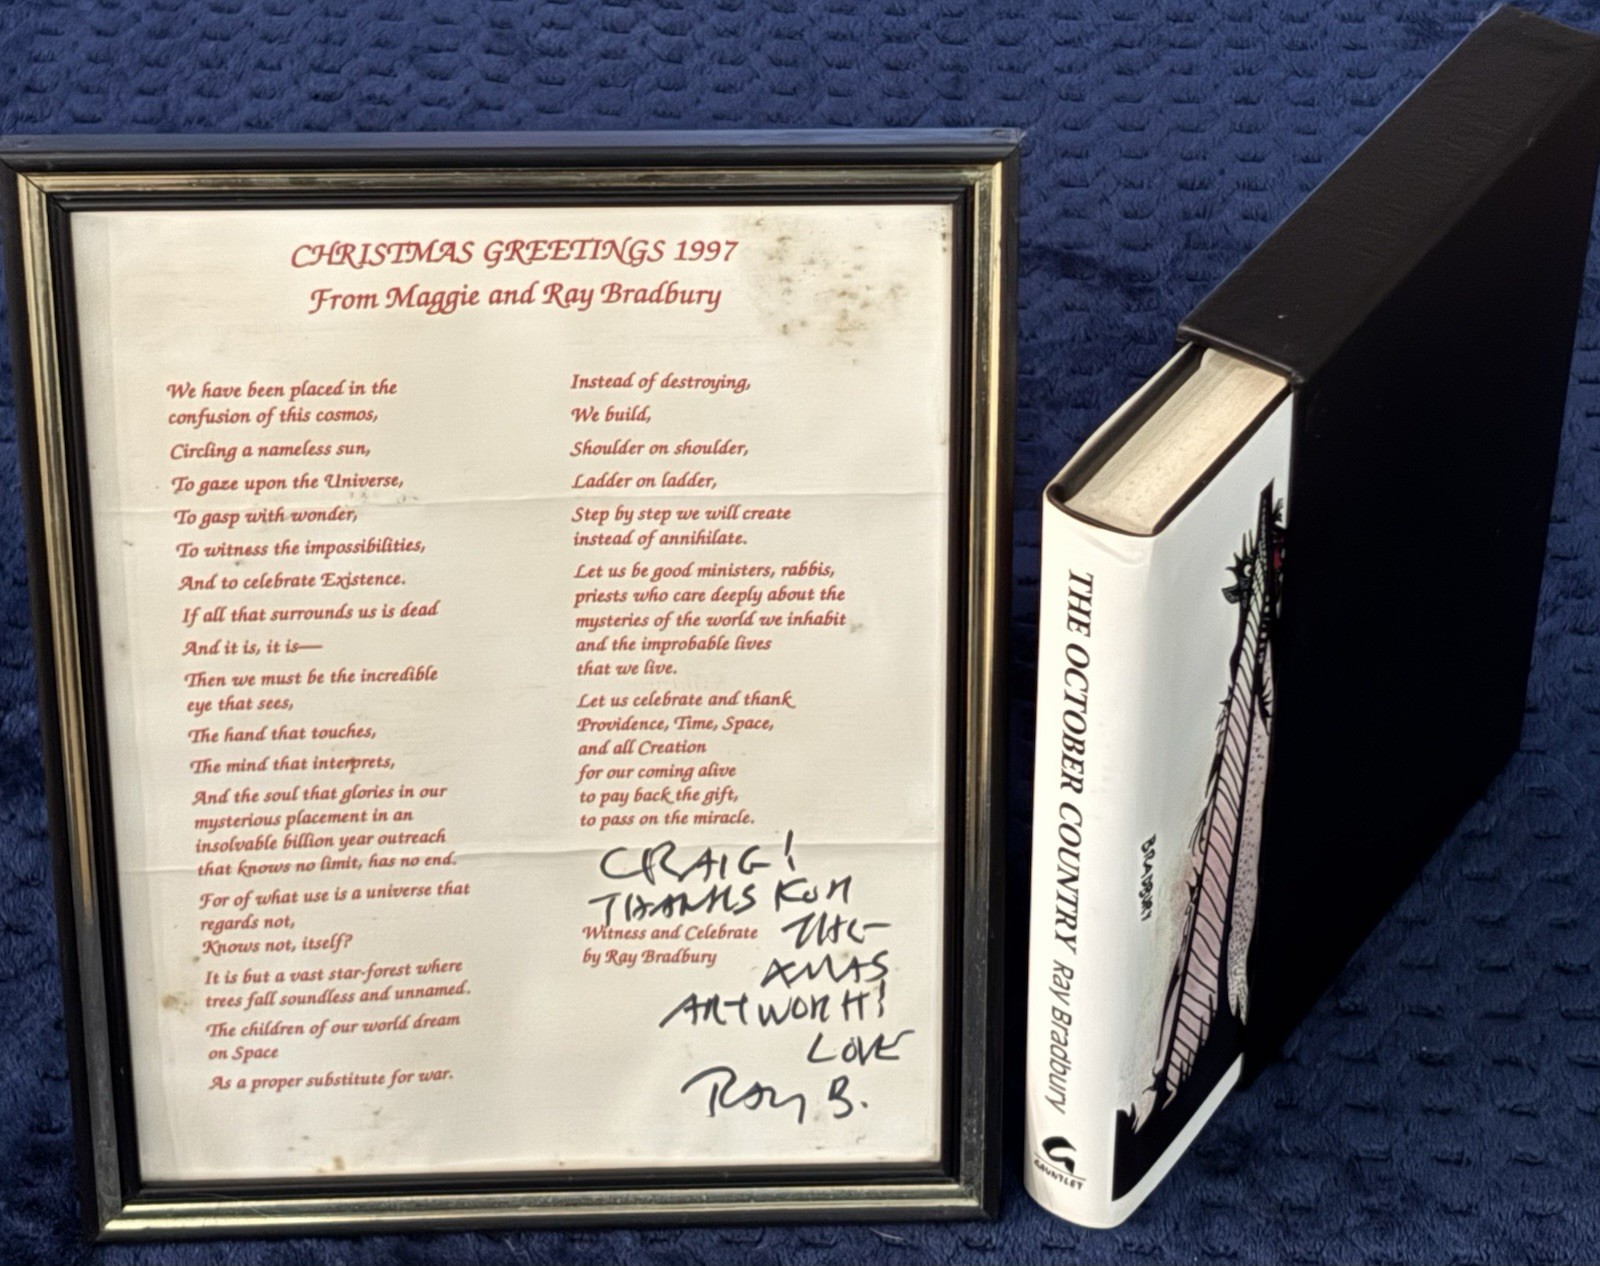 CHRISTMAS GREETINGS 1997
From Maggie and Ray Bradbury
We have been placed in the
confusion of this cosmos,
Circling a nameless sun,
To gaze upon the Universe,
To gasp with wonder,
To witness the impossibilities,
And to celebrate Existence.
If all that surrounds us is dead
And it is, it is—
Then we must be the incredible
eye that sees,
The hand that touches,
The mind that interprets,
And the soul that glories in our
mysterious placement in an
insolvable billion year outreach
that knows no limit, has no end.
For of what use is a universe that
regards not,
Knows not, itself?
It is but a vast star-forest where
trees fall soundless and unnamed.
The children of our world dream
on Space
As a proper substitute for war.
Instead of destroying,
We build,
Shoulder on shoulder,
Ladder on ladder,
Step by step we will create
instead of annihilate.
Let us be good ministers, rabbis,
priests who care deeply about the
mysteries of the world we inhabit
and the improbable lives
that we live.
Let us celebrate and thank
Providence, Time, Space,
and all Creation
for our coming alive
to pay back the gift,
to pass on the miracle.
CRAIG!
THANKS FOR
THE
XMAS
ARTWORK!
LOVE
RAY B.
Witness and Celebrate
by Ray Bradbury
THE OCTOBER COUNTRY Ray Bradbury
GAUNTLET
BRADBURY